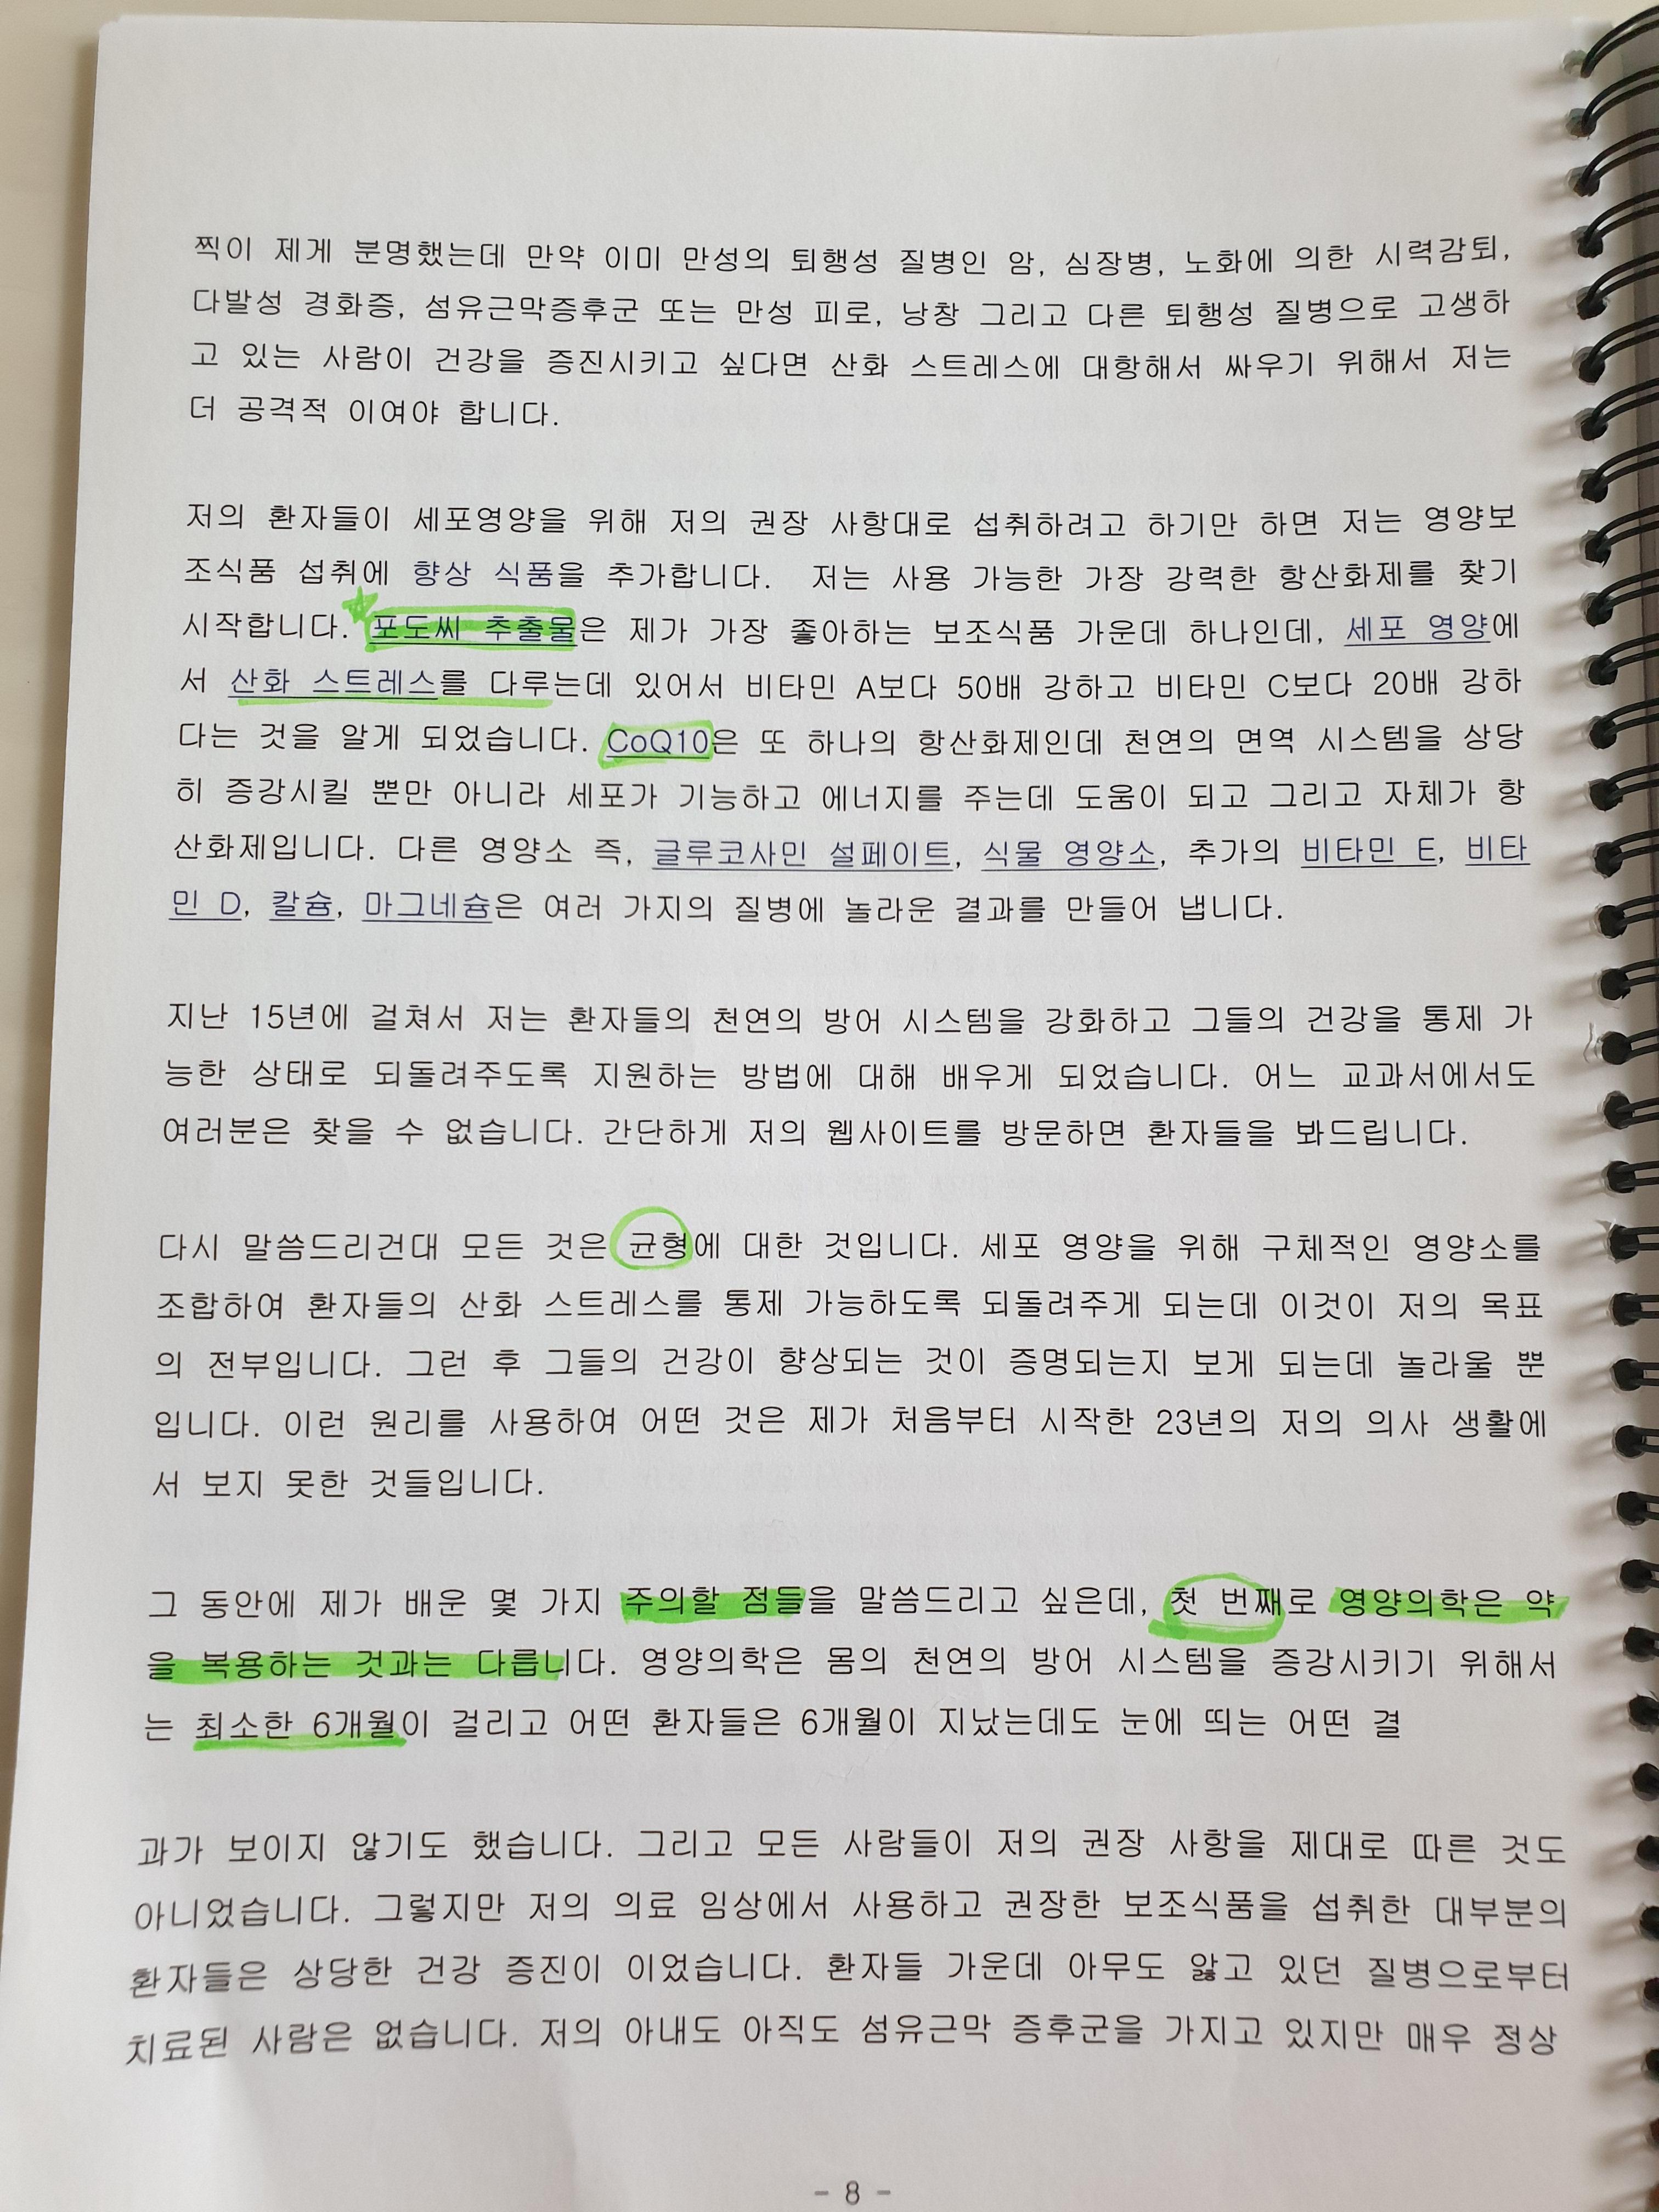 찍이 제게 분명했는데 만약 이미 만성의 퇴행성 질병인 암, 심장병, 노화에 의한 시력감퇴,
다발성 경화증, 섬유근막증후군 또는 만성 피로, 낭창 그리고 다른 퇴행성 질병으로 고생하
고 있는 사람이 건강을 증진시키고 싶다면 산화 스트레스에 대항해서 싸우기 위해서 저는
더 공격적 이여야 합니다.
저의 환자들이 세포영양을 위해 저의 권장 사항대로 섭취하려고 하기만 하면 저는 영양보
조식품 섭취에 향상 식품을 추가합니다. 저는 사용 가능한 가장 강력한 항산화제를 찾기
시작합니다. 포도씨 추출물은 제가 가장 좋아하는 보조식품 가운데 하나인데, 세포 영양에
서 산화 스트레스를 다루는데 있어서 비타민 A보다 50배 강하고 비타민 C보다 20배 강하
다는 것을 알게 되었습니다. CoQ10은 또 하나의 항산화제인데 천연의 면역 시스템을 상당
히 증강시킬 뿐만 아니라 세포가 기능하고 에너지를 주는데 도움이 되고 그리고 자체가 항
산화제입니다. 다른 영양소 즉, 글루코사민 설페이트, 식물 영양소, 추가의 비타민 E, 비타
민 D, 칼슘, 마그네슘은 여러 가지의 질병에 놀라운 결과를 만들어 냅니다.
지난 15년에 걸쳐서 저는 환자들의 천연의 방어 시스템을 강화하고 그들의 건강을 통제 가
능한 상태로 되돌려주도록 지원하는 방법에 대해 배우게 되었습니다. 어느 교과서에서도
여러분은 찾을 수 없습니다. 간단하게 저의 웹사이트를 방문하면 환자들을 봐드립니다.
다시 말씀드리건대 모든 것은 균형에 대한 것입니다. 세포 영양을 위해 구체적인 영양소를
조합하여 환자들의 산화 스트레스를 통제 가능하도록 되돌려주게 되는데 이것이 저의 목표
의 전부입니다. 그런 후 그들의 건강이 향상되는 것이 증명되는지 보게 되는데 놀라울 뿐
입니다. 이런 원리를 사용하여 어떤 것은 제가 처음부터 시작한 23년의 저의 의사 생활에
서 보지 못한 것들입니다.
그 동안에 제가 배운 몇 가지 주의할 점들을 말씀드리고 싶은데, 첫 번째로 영양의학은 약
을 복용하는 것과는 다릅니다. 영양의학은 몸의 천연의 방어 시스템을 증강시키기 위해서
는 최소한 6개월이 걸리고 어떤 환자들은 6개월이 지났는데도 눈에 띄는 어떤 결
과가 보이지 않기도 했습니다. 그리고 모든 사람들이 저의 권장 사항을 제대로 따른 것도
아니었습니다. 그렇지만 저의 의료 임상에서 사용하고 권장한 보조식품을 섭취한 대부분의
환자들은 상당한 건강 증진이 이었습니다. 환자들 가운데 아무도 앓고 있던 질병으로부터
치료된 사람은 없습니다. 저의 아내도 아직도 섬유근막 증후군을 가지고 있지만 매우 정상
- 8 -